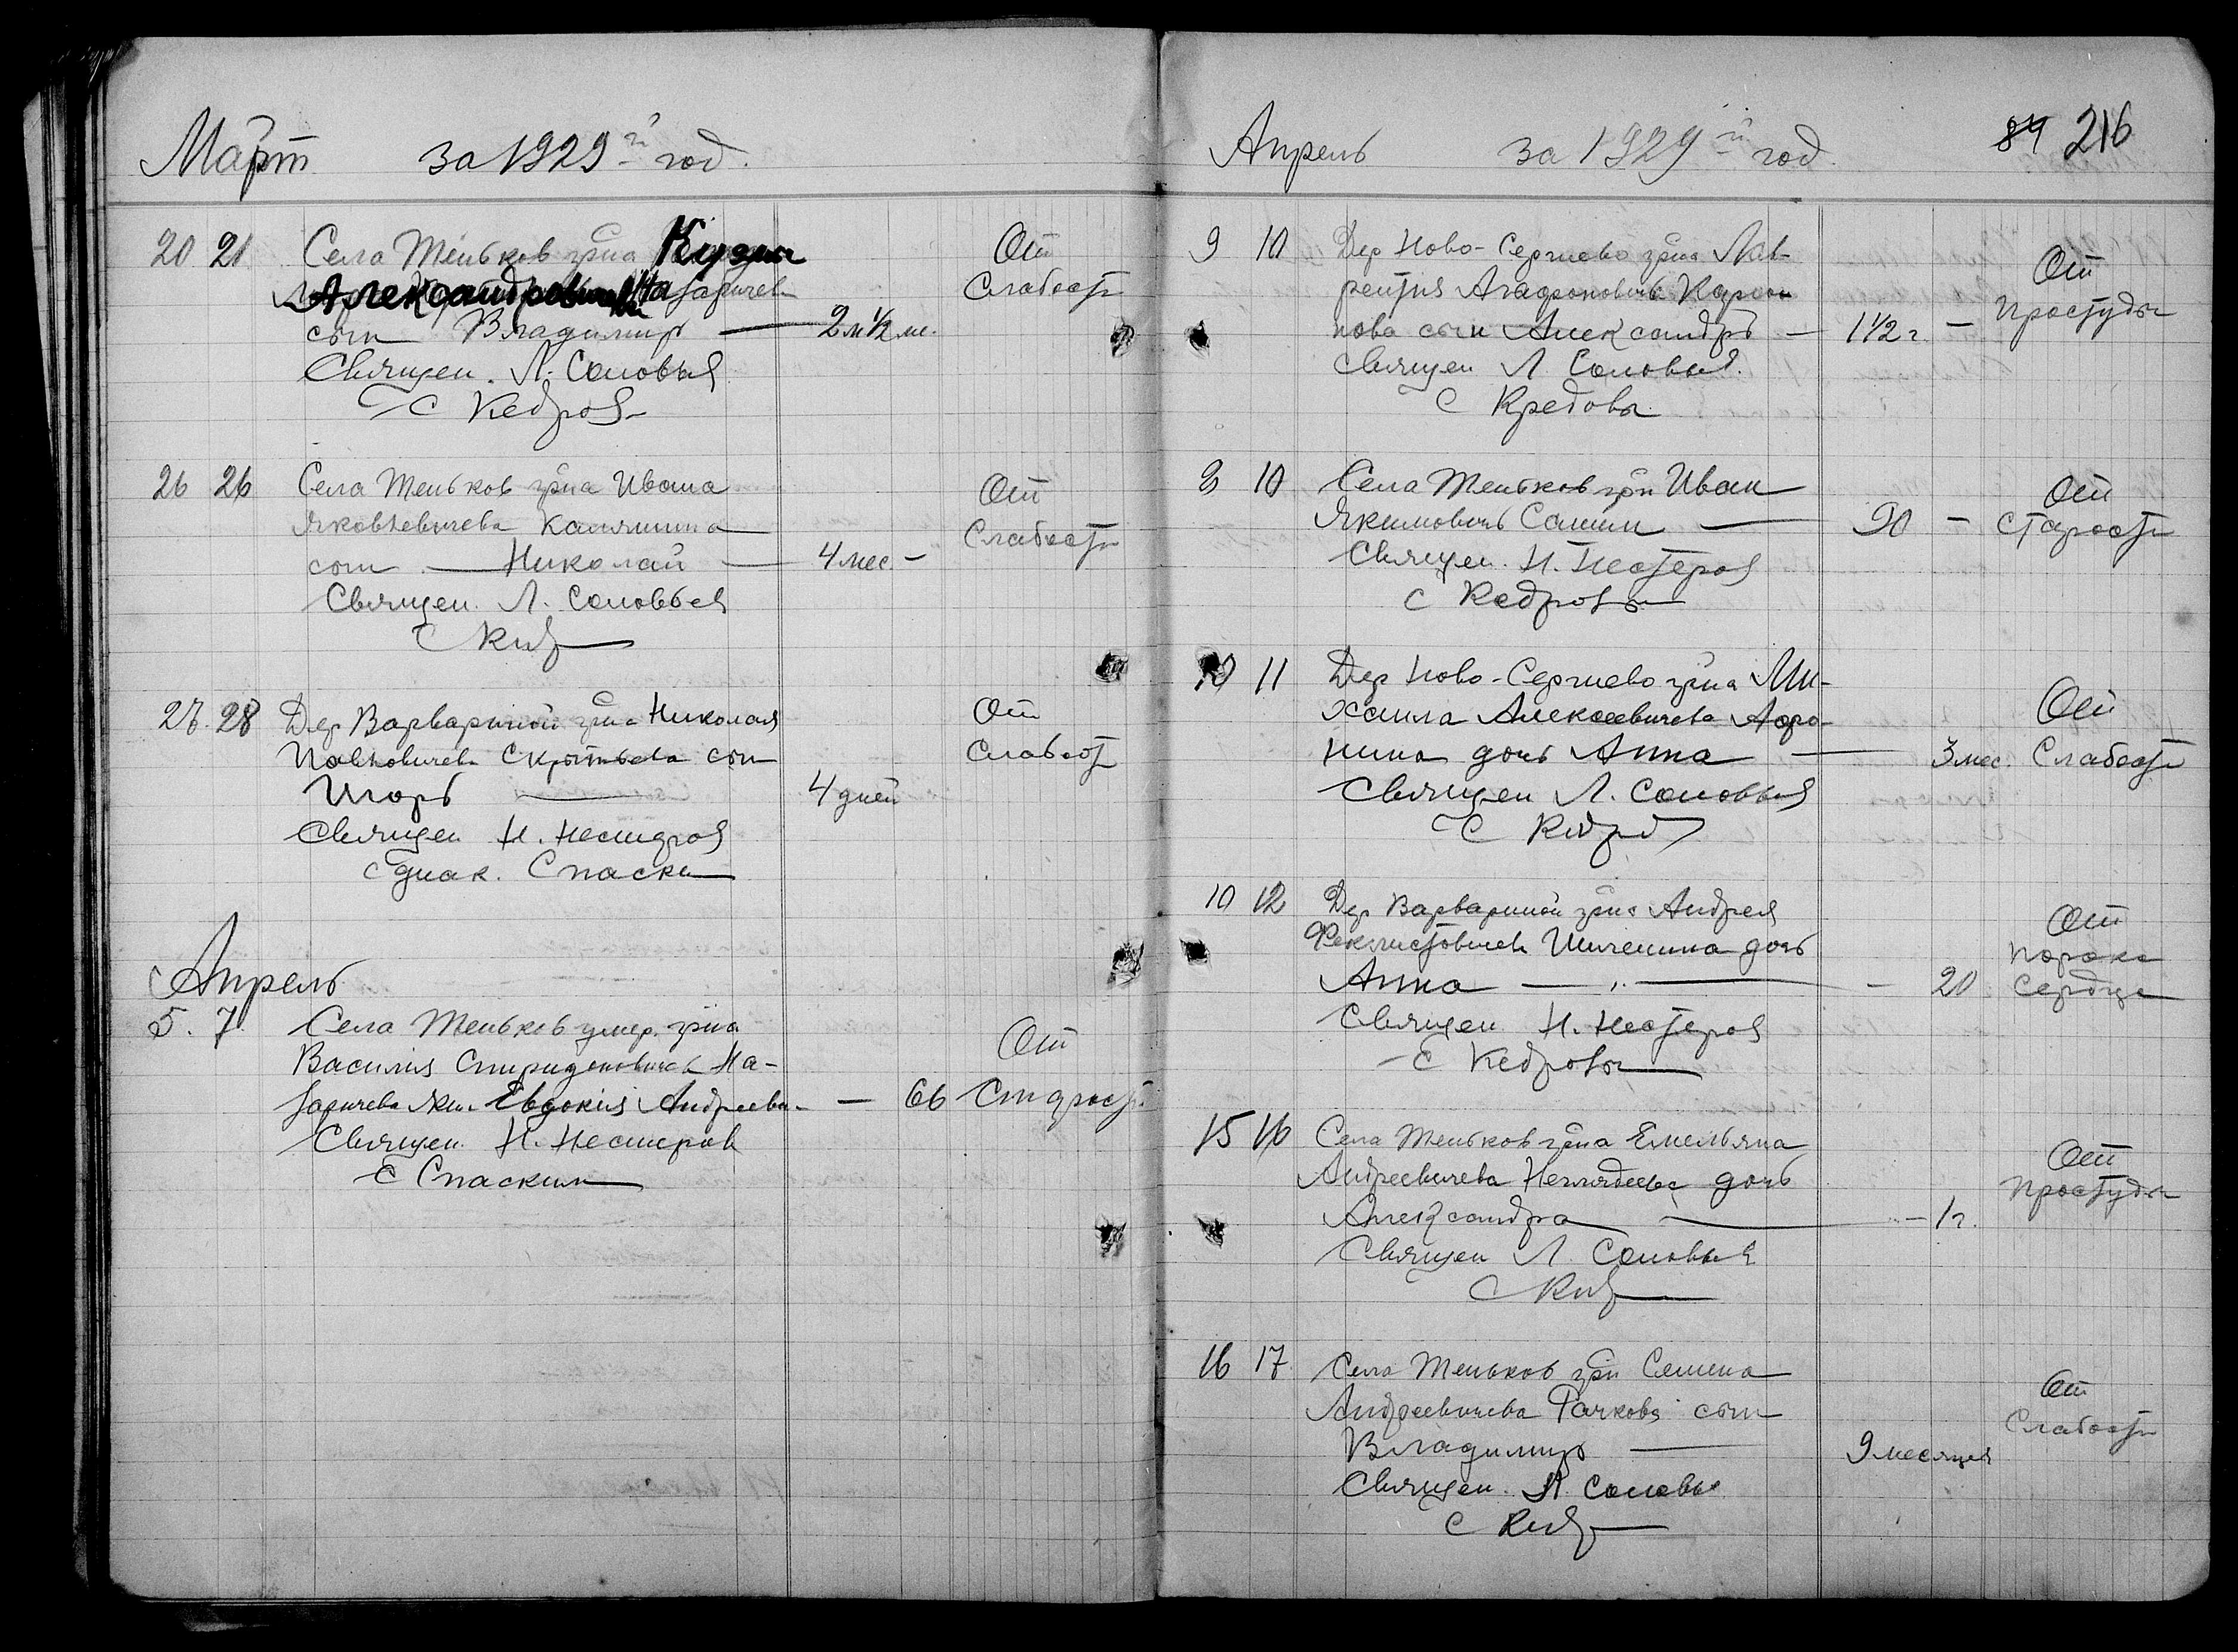 Март за 1929 й год.
20 21 Села Теньков гр-на Кузмы
Александровича Назаричева
сын Владимир — 2 м ½ м. От Слабости
Священ. Л. Соловьев
С Кедров
26 26 Села Теньков гр-на Ивана
Яковлевичева Калинина
сын — Николай — 4 мес. — От Слабости
Священ. Л. Соловьев
С
27. 28 Дер Варвариной гр-на Николая
Павловичева сын
Игорь — 4 дней От Слабост
Священ Н. Нестеров
С диак. Спаски
Апрель
5. 7 Села Теньков умер. гр-на
Василия Спиридоновичева На-
заричева жен. Евдокия Андреевн. — 66 От Старост.
Священ. Н. Нестеров
С Спаским
Апрель за 1929 й год. 84 216
9 10 Дер Ново-Сергиево гр-на Лав-
рентия Агафоновичь Карпо
нова сын Александръ — 1 1/2 г. — От простуды
Священ Л Соловьев.
С Кедровы
9 10 Села Теньков гр-н Иван
Якимовичь Санин — 90 — От старости
Священ. Н. Нестеров
С Кедровы
10 11 Дер Ново-Сергиево гр-на Ми-
хаила Алексеевичева Афо-
нина дочь Анна — 3 мес. От Слабости
Священ Л. Соловьев
С Кедров
10 12 Дер Варвариной гр-на Андрея
Феклистовичева дочь
Анна — „ — 20 От порока Сердца
Священ Н. Нестеров
С Кедровы
15 16 Села Теньков гр-на Емельяна
Андреевичева дочь
Александра — 1 г. От простуды
Священ Л. Соловьев
С
16 17 Села Теньков гр-н Семена
Андреевичева Гачкова сын
Владимир — 9 месяцев От Слабости
Священ. Л. Соловье
С